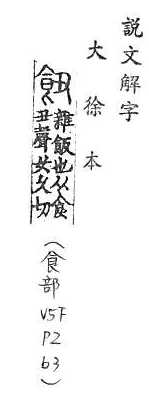 説文解字
大徐本
雜飯也从食
丑聲女久切
(食部
V5F
P2
b3)